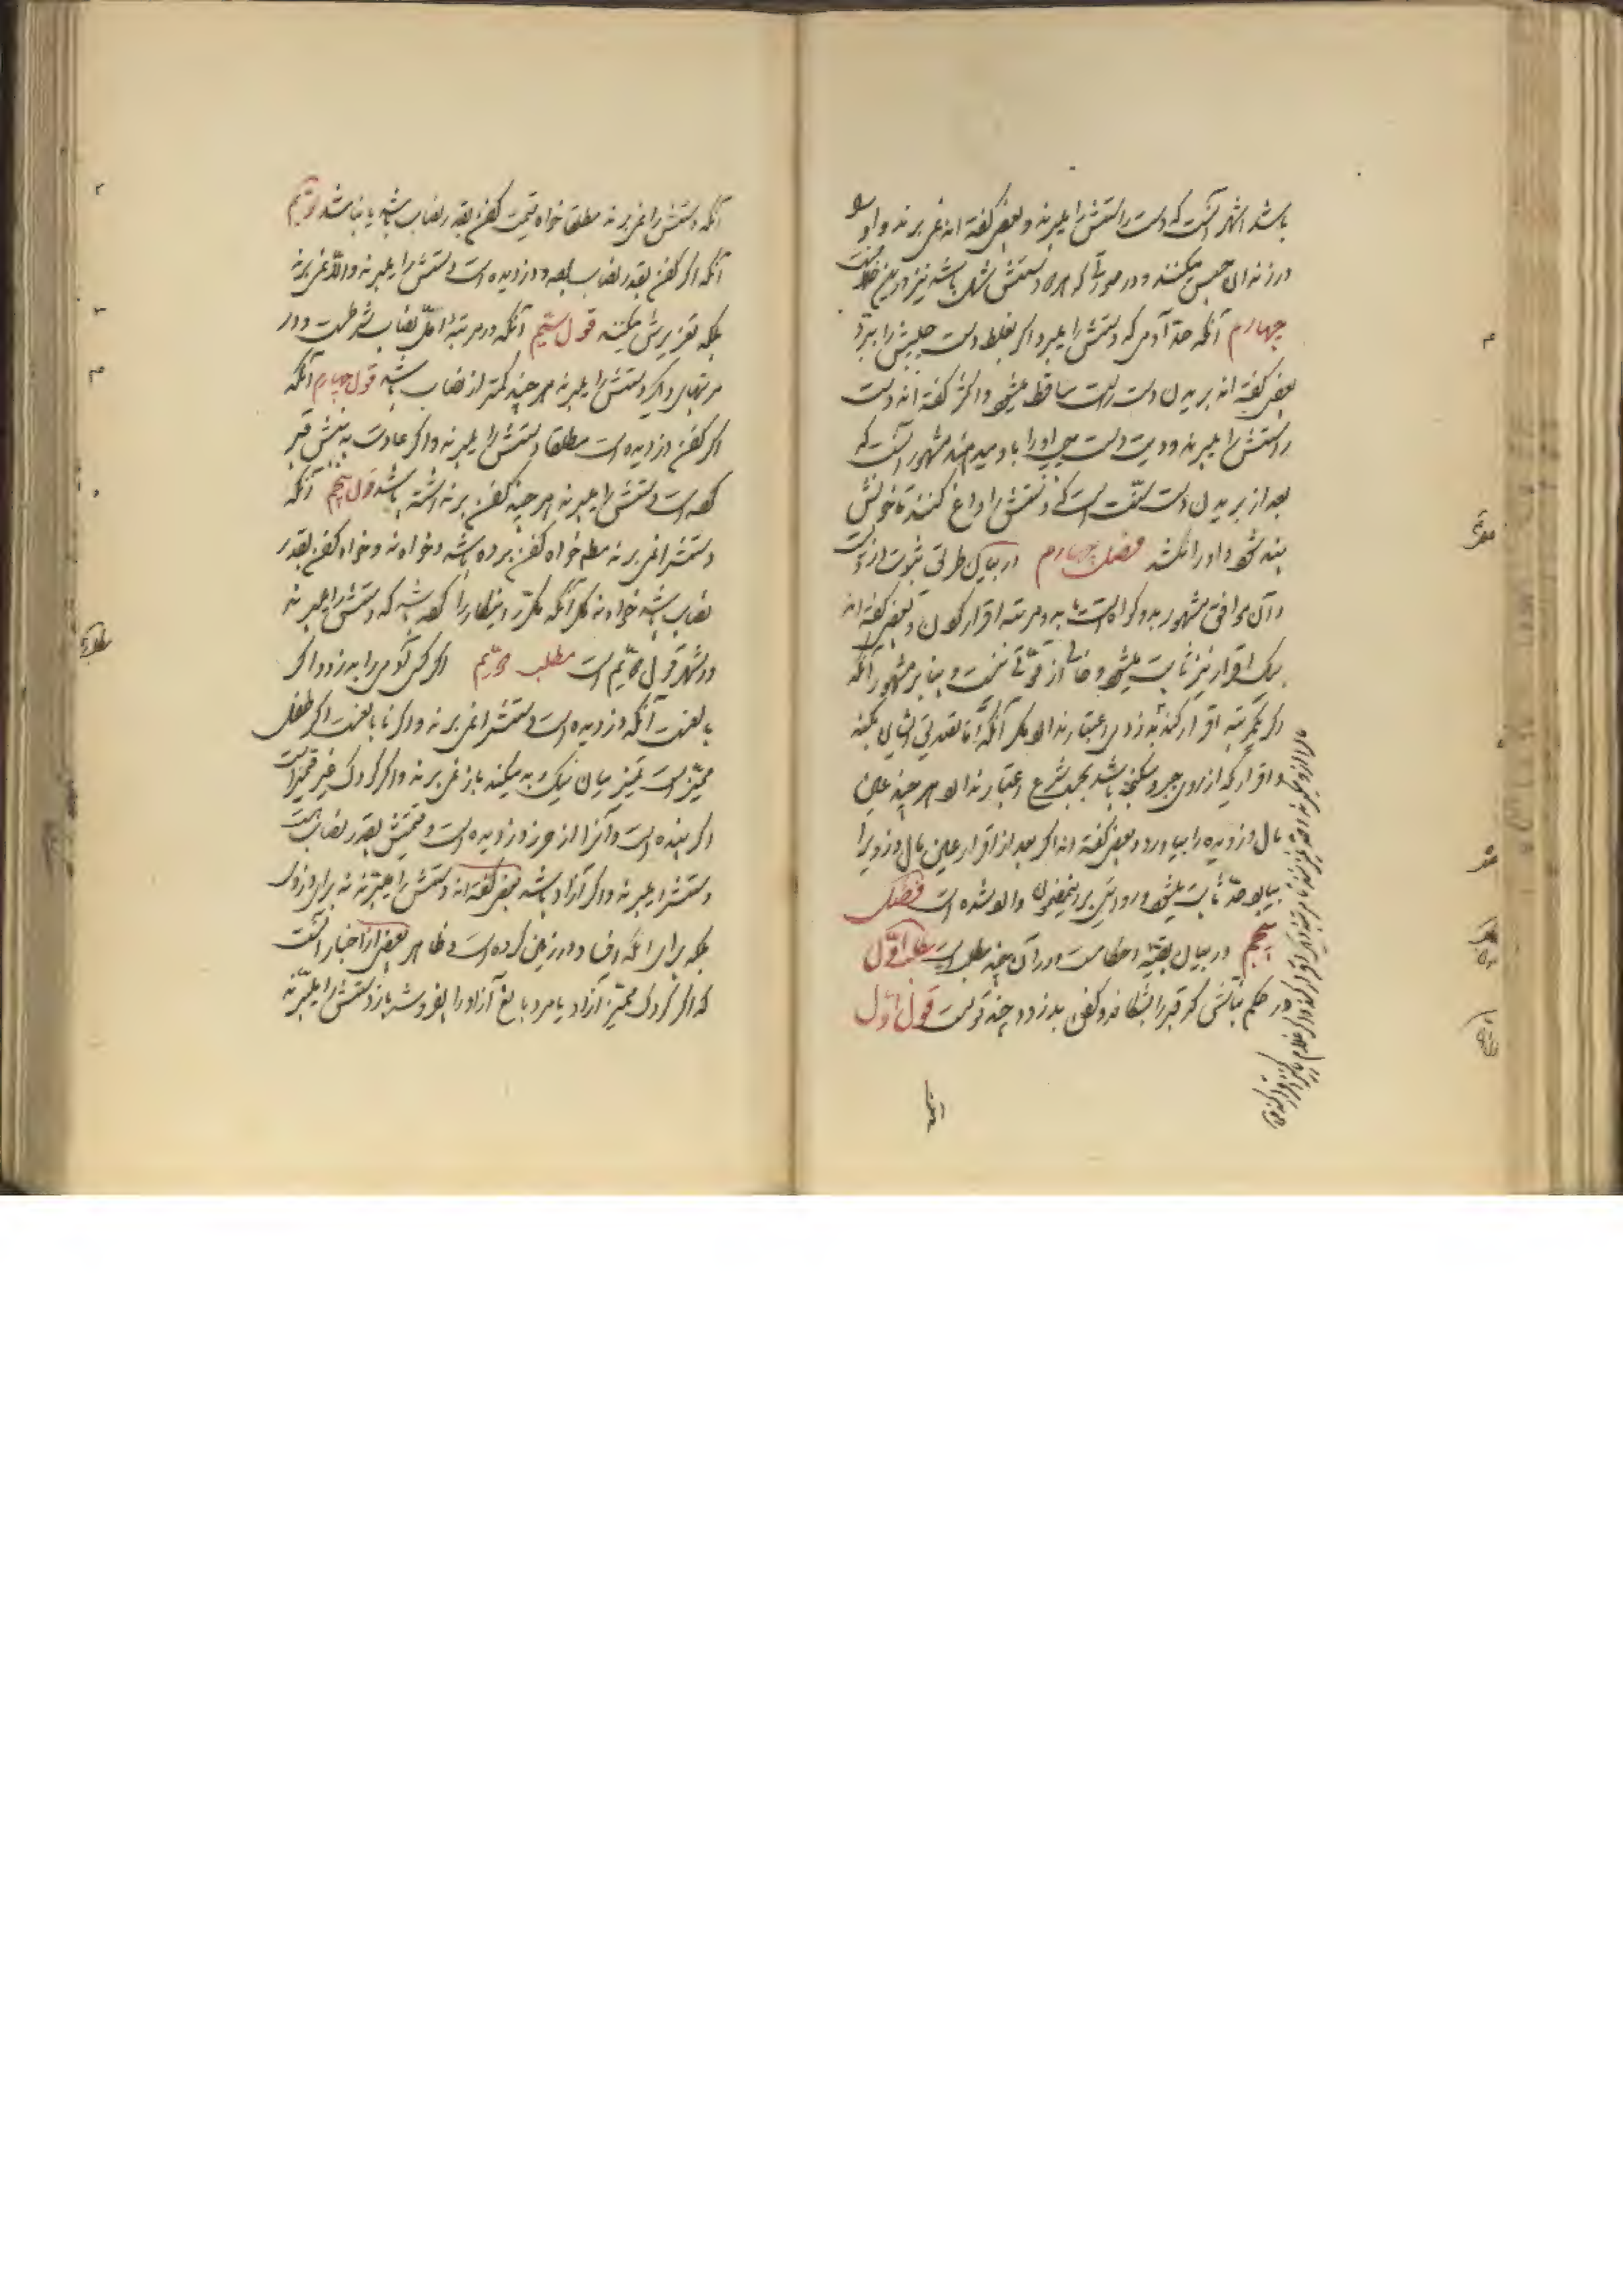 باشد اشهر آنست که دست راستش را میبرند و بعضی گفته اند نمی برند و او را
در زندان حبس میکنند و در صورتی که هر دو دستش شل باشد نیز درین خلافست
چهارم آنکه حدّ آدمی که دستش را میبرد اگر بغلط دست چپش را ببرد
بعضی گفته اند بریدن دست راست ساقط میشود و اکثر گفته اند دست
راستش را میبرند و دیت دست چپ او را باو میدهند مشهور آنست که
بعد از بریدن دست سنّت است که دستش را داغ کنند تا خونش
بند شود و او را نکشد فصل چهارم در بیان طریق ثبوت دزدیست
و آن موافق مشهور بدو گواه است یا بدو مرتبه اقرار کردن و بعضی گفته اند
بیک اقرار نیز ثابت میشود و خالی از قوّتی نیست و بنا بر مشهور آنکه
اگر یکمرتبه اقرار کند بدزدی اعتبار ندارد مگر آنکه تصدیق ایشان بکند
و اقراریکه از روی جبر و شکنجه باشد بحسب شرع اعتبار ندارد هر چند عین
مال دزدیده را بیاورد و بعضی گفته اند اگر بعد از اقرار عین مال دزدی را
بیاورد حدّ ثابت میشود و روایتی بر اینمضمون وارد شده است فصل
پنجم در بیان بقیّه احکامست و در آن چند مطلب است مطلب اوّل
در حکم نبّاشی که قبر را بشکافد و کفن بدزدد چند قولست قول اوّل
آنکه
آنکه دستش را نمی برند مطلقا خواه قیمت کفن بقدر نصاب باشد یا نباشد دویّم
آنکه اگر کفن بقدر نصاب بوده و دزدیده است دستش را میبرند و الّا نمی برند
بلکه تعزیرش میکنند قول سیّم آنکه در مرتبۀ اوّل نصاب شرطست و در
مرتبهای دیگر دستش را میبرند هر چند کمتر از نصاب باشد قول چهارم آنکه
اگر کفن دزدیده است مطلقا دستش را میبرند و اگر عادت به نبش قبر
کرده است دستش را میبرند هر چند کفن برنداشته باشد قول پنجم آنکه
دستش را نمی برند مطلقا خواه کفن برده باشد و خواه نه و خواه کفن بقدر
نصاب باشد خواه نه مگر آنکه مکرّر اینکار را کرده باشد که دستش را میبرند
و اشهر قول دویّم است مطلب دویّم اگر کسی آدمی را بدزدد اگر
بالغست آنکه دزدیده است دستش را نمی برند و اگر نابالغست اگر طفل
ممیّز است تمیز میان نیک و بد میکند باز نمی برند و اگر کودک غیر ممیّز است
اگر بنده است و آنرا از حرز دزدیده است و قیمتش بقدر نصاب هست
دستش را میبرند و اگر آزاد باشد بعضی گفته اند دستش را میبرند نه برای دزدی
بلکه برای آنکه فساد در زمین کرده است و ظاهر بعضی از اخبار آنست
که اگر کودک ممیّز آزاد یا مرد بالغ آزاد را بفروشد باز دستش را میبرند